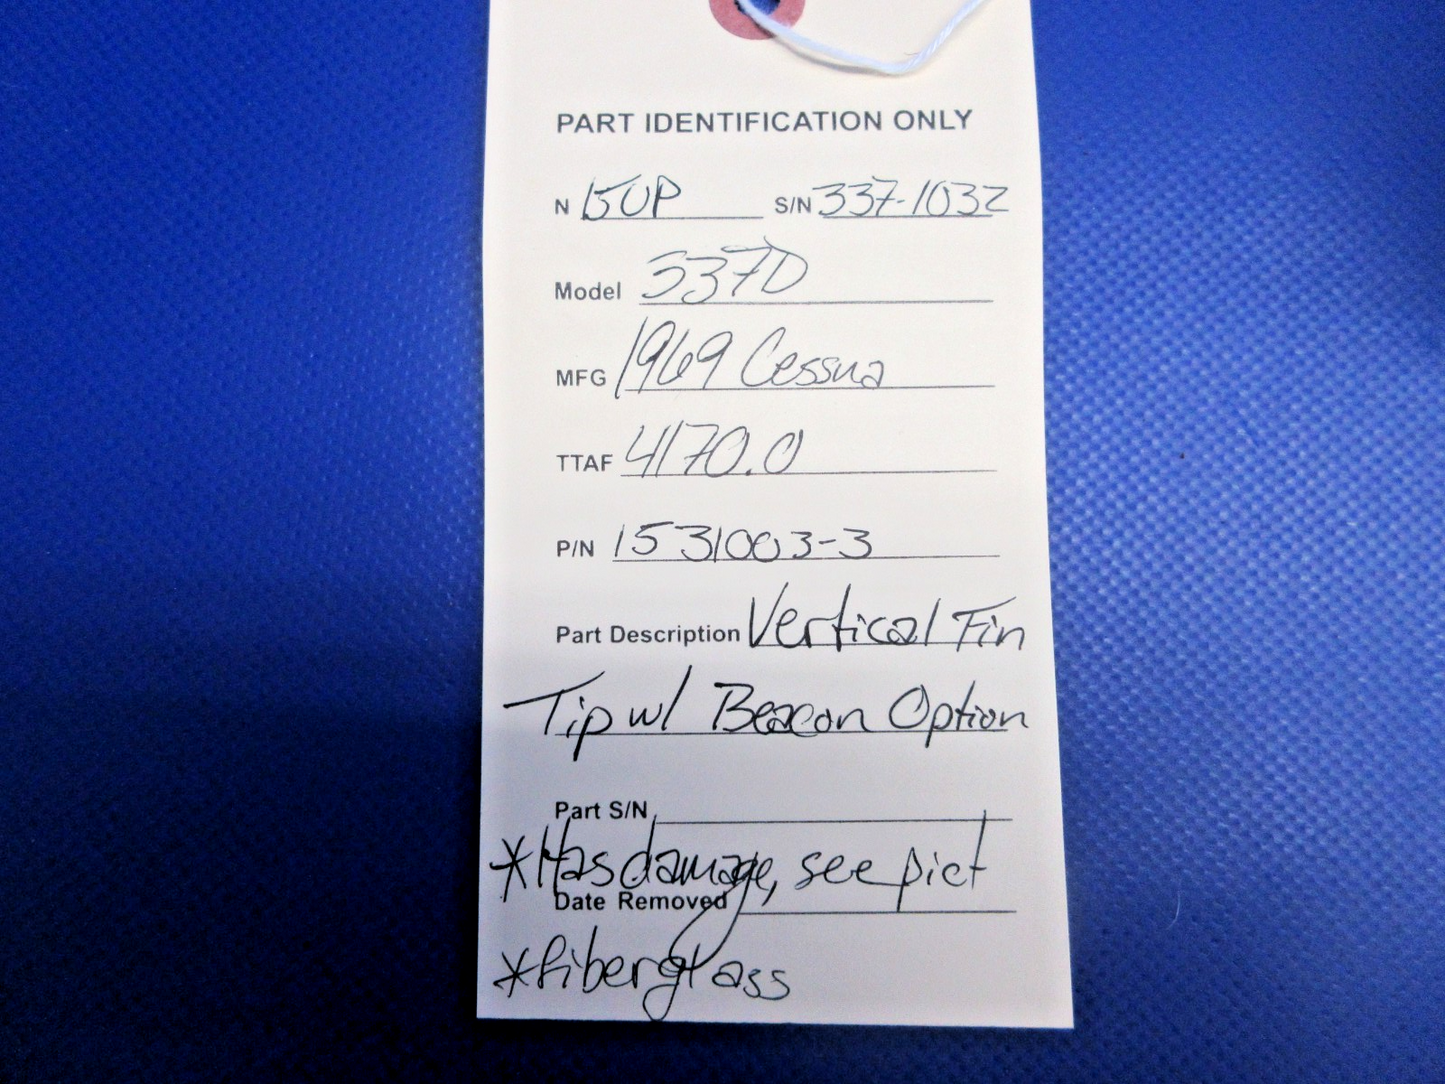 PART IDENTIFICATION ONLY
N 15UP S/N 337-1032
Model 337D
MFG 1969 Cessna
TTAF 4170.0
P/N 1531003-3
Part Description Vertical Fin
Tip w/ Beacon Option
Part S/N
*Has damage, see pict
Date Removed
*fiberglass